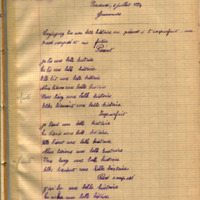 Grammaire
Conjuguez lire une belle histoire au présent à l'imparfait au
passé composé et au futur
Présent
je lis une belle histoire
tu lis une belle histoire
Elle lit une belle histoire
Nous lisons une belle histoire
Vous lisez une belle histoire
Elles lisent une belle histoire
Imparfait
je lisais une belle histoire
tu lisais une belle histoire
Elle lisait une belle histoire
Nous lisions une belle histoire
Vous une belle histoire
Elles lisaient une belle histoire
Passé composé
j'ai lu une belle histoire
tu as lu une belle histoire